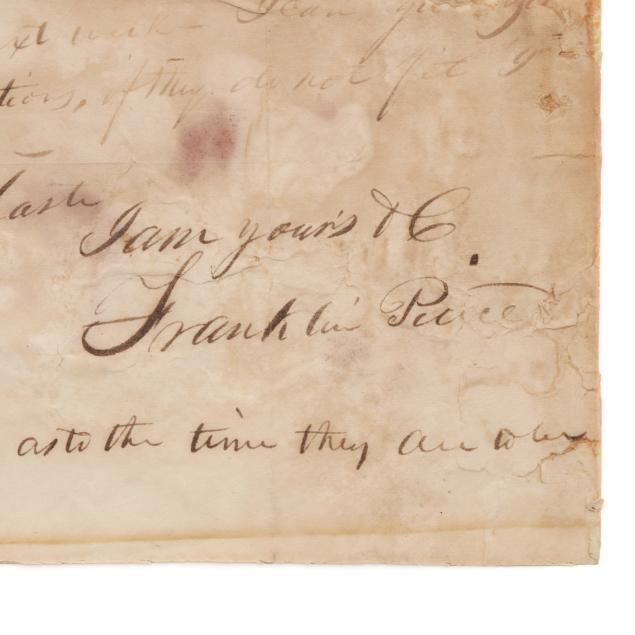 ext week - I can give you
tions, if they do not fit I
Haste
I am yours &C.
Franklin Pierce
as to the time they are to be